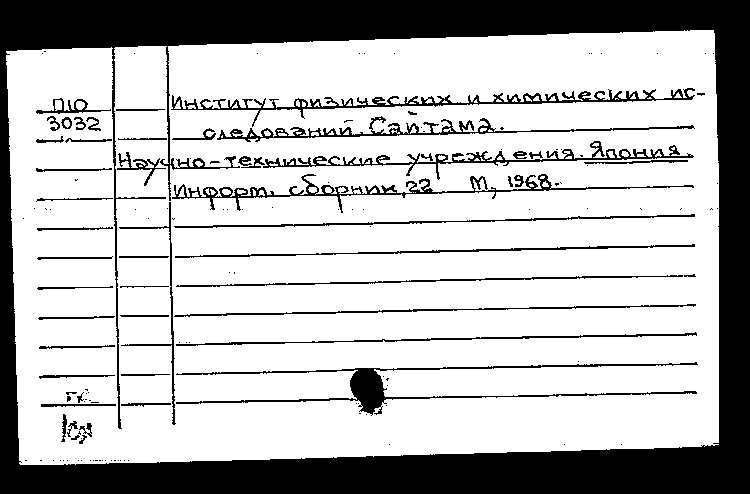 П10
3032
Институт физических и химических ис-
следований. Сайтама.
Научно-технические учреждения. Япония.
Информ. сборник, 22 М, 1968.